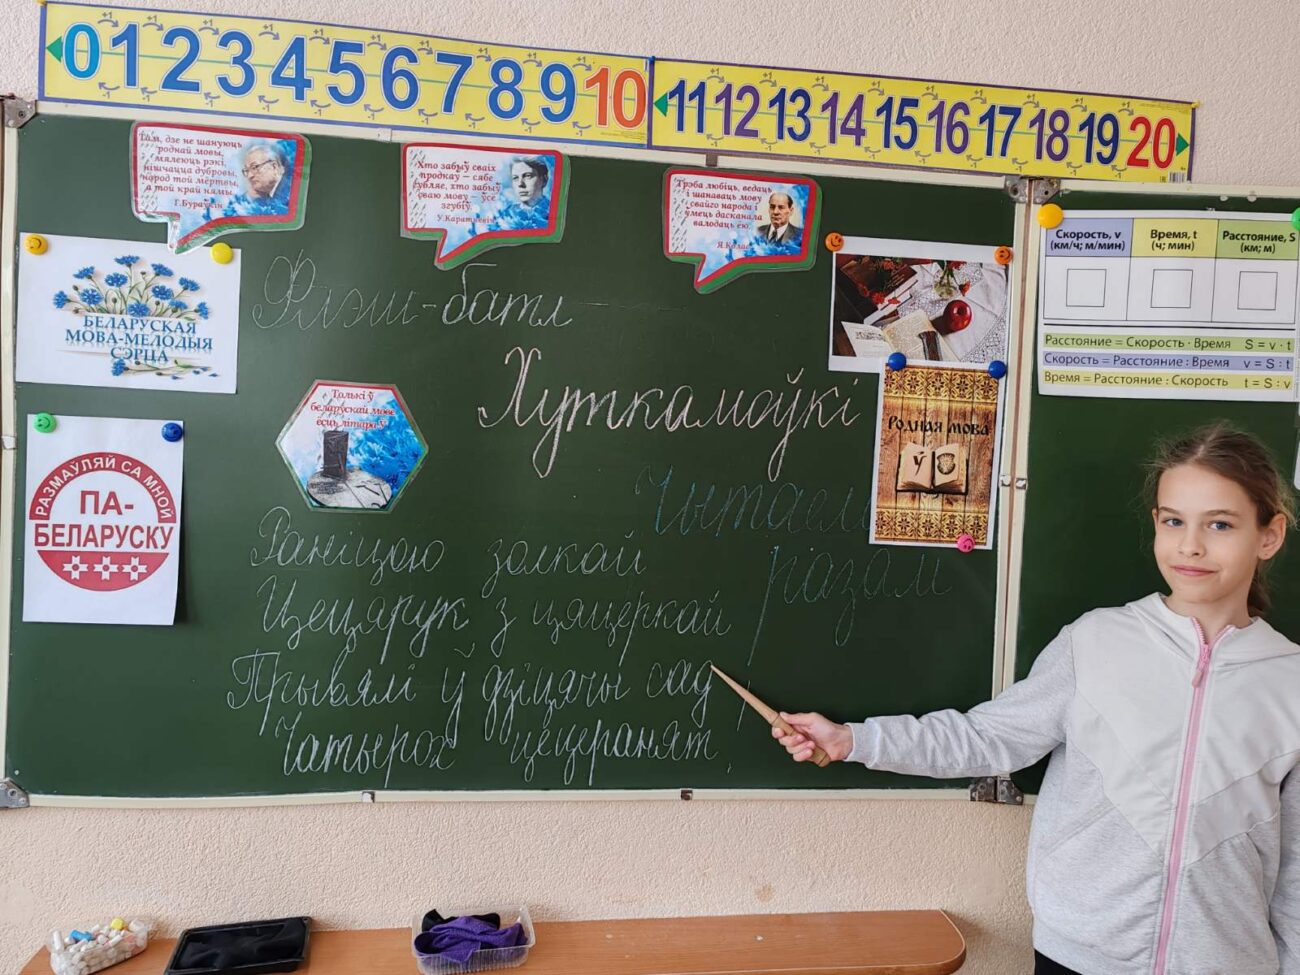 0 1 2 3 4 5 6 7 8 9 10
11 12 13 14 15 16 17 18 19 20
Там, дзе не шануюць
роднай мовы,
мялеюць рэкі,
нішчацца дубровы,
народ той мёртвы,
а той край нямы.
Г.Бураўкін
Хто забыў сваіх
продкаў – сябе
губляе, хто забыў
сваю мову – ўсе
згубіў.
У.Караткевіч
Трэба любіць, ведаць
і шанаваць мову
свайго народа і
умець дасканала
валодаць ею.
Я.Колас
БЕЛАРУСКАЯ
МОВА-МЕЛОДЫЯ
СЭРЦА
РАЗМАЎЛЯЙ СА МНОЙ
ПА-
БЕЛАРУСКУ
Толькі ў
беларускай мове
ёсць літара Ў
Флэш-батл
Хуткамоўкі
Чытаем
разам
Раніцою золкай
Цецярук з цяцеркай
Прывялі ў дзіцячы сад
Чатырох цецеранят.
Родная мова
Ў
Скорость, v
(км/ч; м/мин)
Время, t
(ч; мин)
Расстояние, S
(км; м)
Расстояние = Скорость · Время S = v · t
Скорость = Расстояние : Время v = S : t
Время = Расстояние : Скорость t = S : v